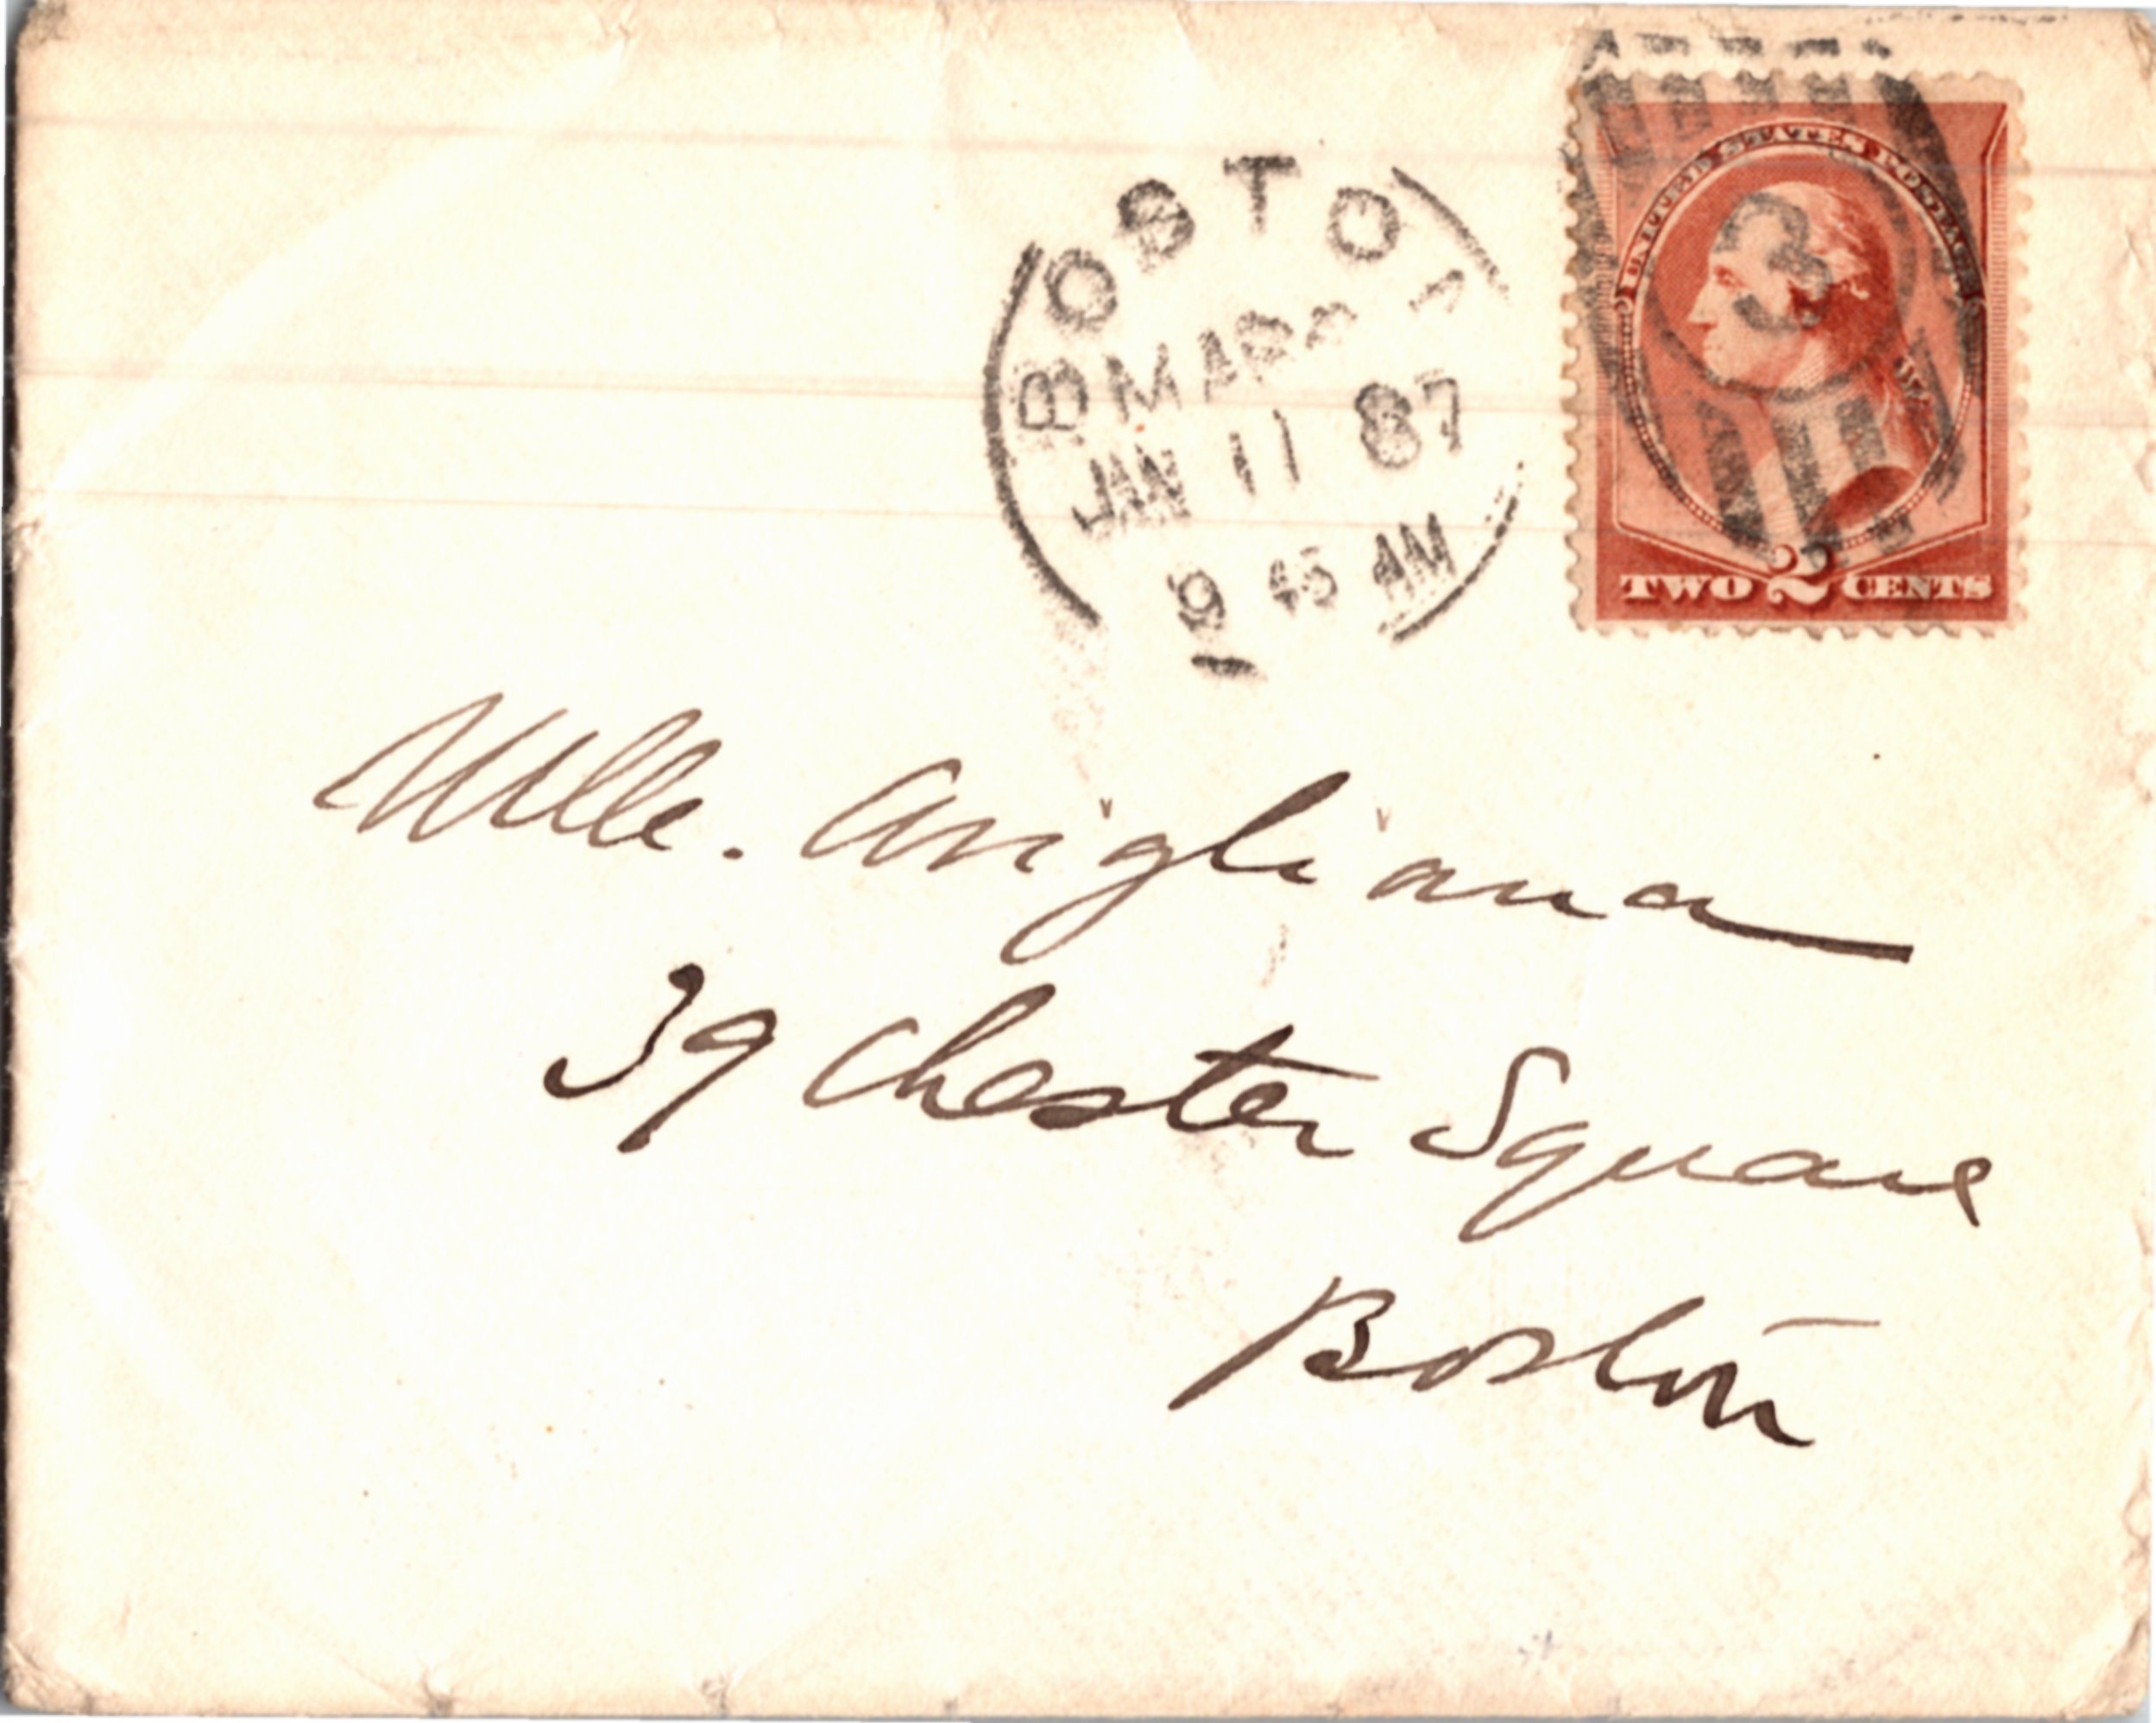 BOSTON
MASS
JAN 11 87
9 45 AM
UNITED STATES POSTAGE
3
TWO 2 CENTS
Mlle. Avigliana
39 Chester Square
Boston